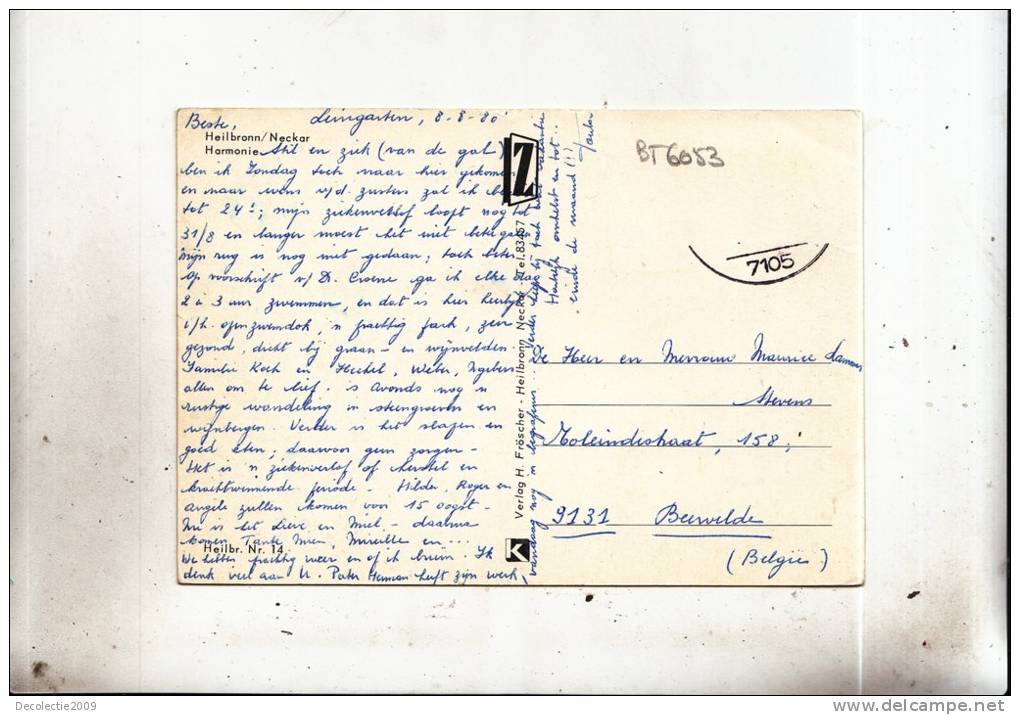 Beste, Leingarten, 8-8-80
Heilbronn/Neckar
Harmonie
Stil en ziek (van de gal)
ben ik Zondag toch naar hier gekomen
en naar wens v/d. zusters zal ik
tot 24!; mijn ziekenverlof loopt nog tot
31/8 en langer moest het niet
Mijn rug is nog niet gedaan; toch beter
Op voorschrift v/ Dr. Croene ga ik elke dag
2 à 3 uur zwemmen, en dat is hier heerlijk
i/h. openzwemdok, 'n prachtig park, zeer
gezond, dicht bij graan- en wijnvelden.
Familie Koch en Hechel, Weber,
allen om te lief. 's Avonds nog 'n
rustige wandeling in steengroeven en
wijnbergen. Verder is het slapen en
goed eten; daarvoor geen zorgen -
Het is 'n ziekenverlof of herstel en
krachtwinnende periode - Hilda, Roger en
Angèle zullen komen voor 15 oogst -
Nu is het Lieve en Miel - daarna
komen Tante Mien, Mireille en ...
Heilbr. Nr. 14
We hebben prachtig weer en of ik bruin. Ik
denk veel aan U. Pater Herman heeft zijn werk,
vandaag nog 'n begrafenis ... verder
toch wat vakantie
Hartelijk omhelst en tot ...
einde de maand (!)
Verlag H. Fröscher - Heilbronn Neckar - Tel. 83457
Z
K
BT6053
7105
De Heer en Mevrouw Maurice
Stevens
Toleindestraat, 158,
9131 Beervelde
(België)
Decolectie2009
www.delcampe.net